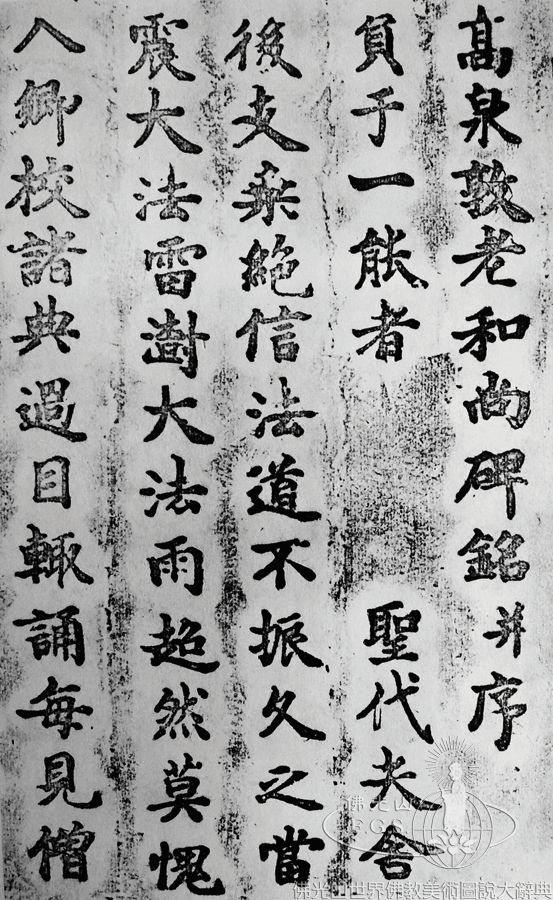 髙泉敦老和尚碑銘并序
負于一能者 聖代夫舍
後支乘絕信法道不振久之當
震大法雷澍大法雨超然莫愧
入鄉校諸典過目輒誦每見僧
佛光山
F.G.S.
佛光山世界佛教美術圖說大辭典